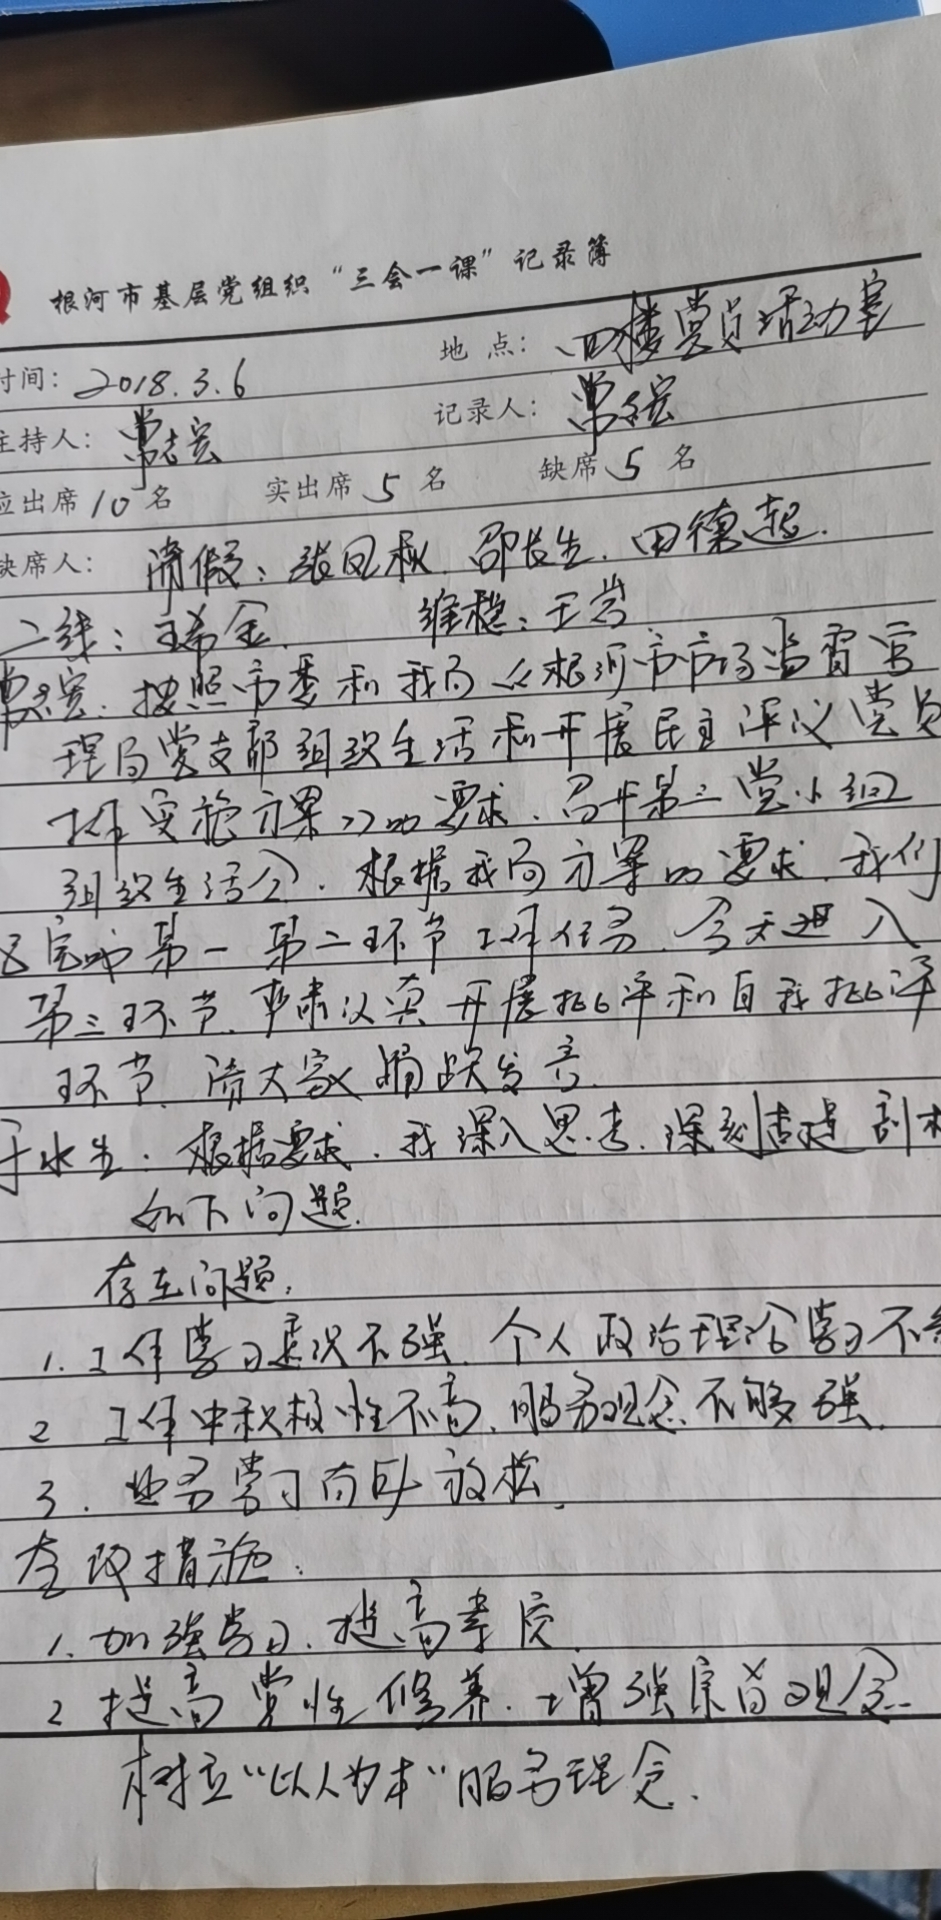 根河市基层党组织“三会一课”记录簿
时间：2018.3.6 地点：四楼党员活动室
主持人：常志宾 记录人：常志宾
应出席10名 实出席5名 缺席5名
缺席人：请假：张凤秋、邵长生、田德起.
二线：王希金. 维稳：王岩
常志宾：按照市委和我局《根河市市场监督管
理局党支部组织生活和开展民主评议党员
工作实施方案》的要求，召开第三党小组
组织生活会．根据我局方案的要求，我们
已完成第一第二环节工作任务，今天进入
第三环节，严肃认真开展批评和自我批评
环节，请大家踊跃发言．
于水生：根据要求，我深入思考，深刻查摆剖析
如下问题．
存在问题：
1．工作学习意识不强，个人政治理论学习不
2 工作中积极性不高，服务观念不够强．
3．业务学习有所放松．
整改措施：
1．加强学习，提高素质．
2 提高党性修养，增强宗旨观念
树立“以人为本”服务理念．